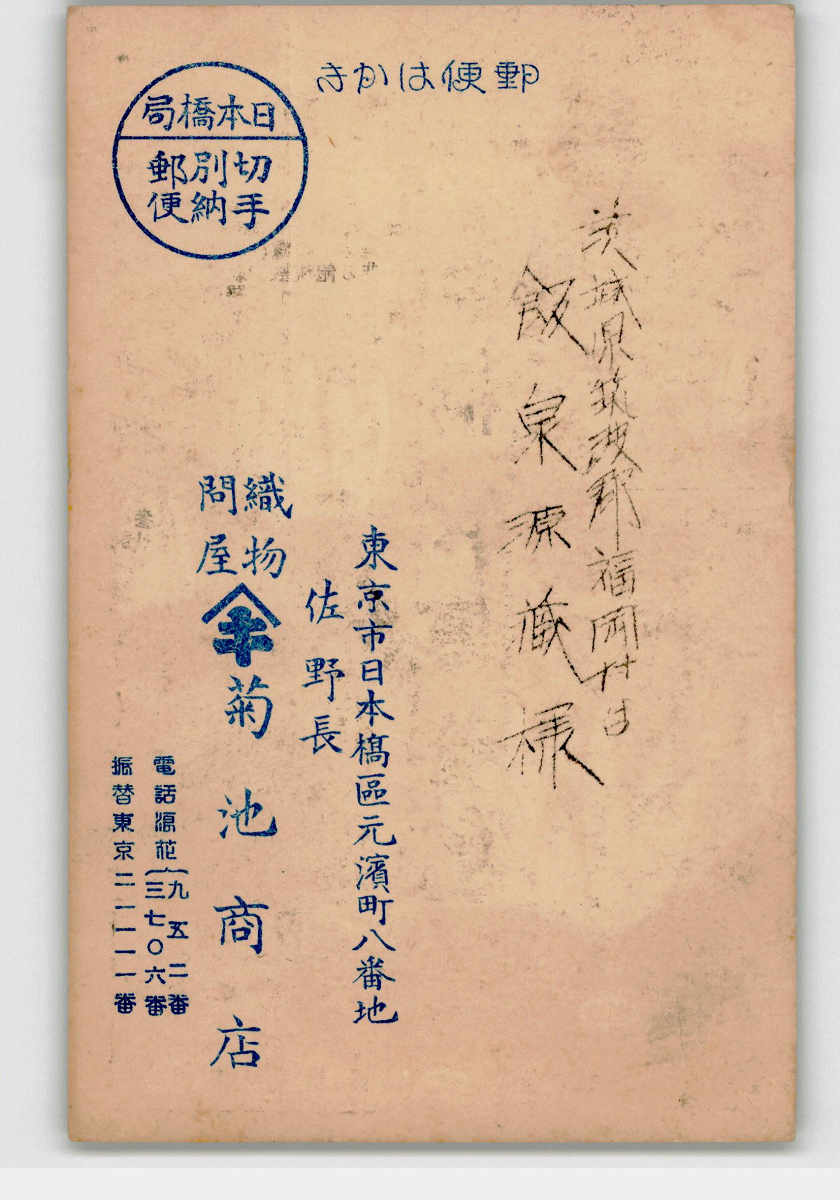 郵便はかき
日本橋局
切手
別納
郵便
茨城県筑波郡福岡
飯泉源蔵様
東京市日本橋區元濱町八番地
佐野長
織物
問屋
菊池商店
電話浪花
九五二番
三七〇六番
振替東京二一一一一番